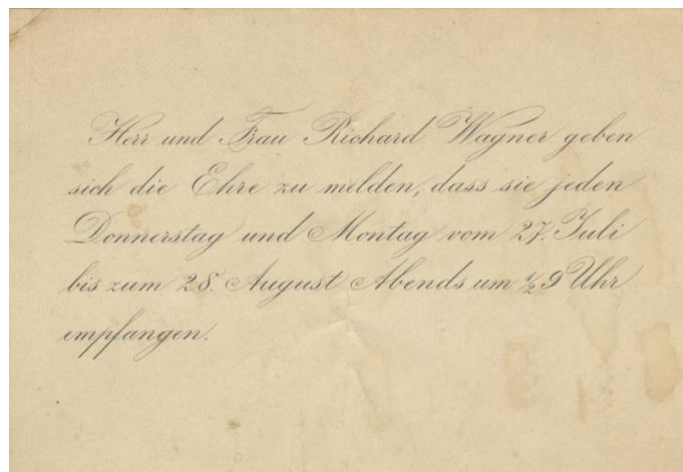 Herr und Frau Richard Wagner geben
sich die Ehre zu melden, dass sie jeden
Donnerstag und Montag vom 27. Juli
bis zum 28. August Abends um ½9 Uhr
empfangen.